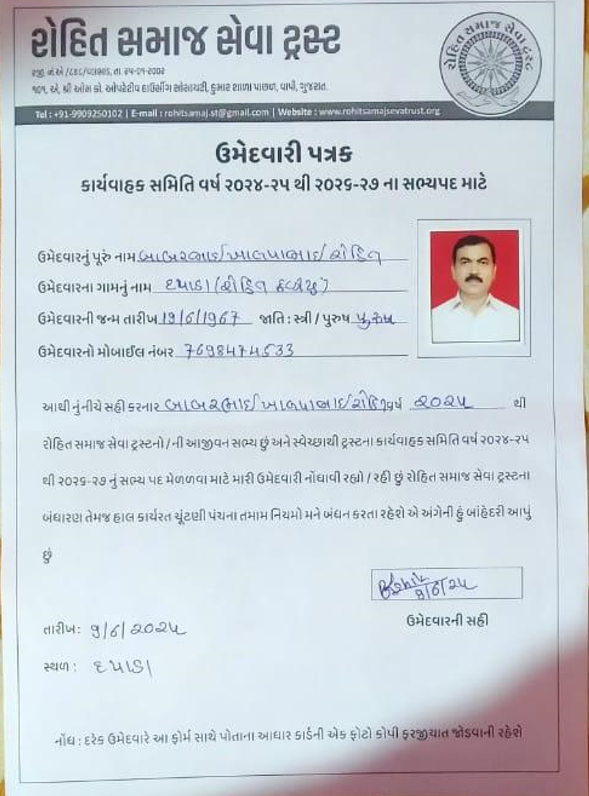 રોહિત સમાજ સેવા ટ્રસ્ટ
રજી. નં.એ /૮૪૮/વલસાડ, તા. ૨૫-૦૧-૨૦૦૨
૧૦૧, એ, શ્રી ઓમ કો. ઓપરેટીવ હાઉસીંગ સોસાયટી, કુમાર શાળા પાછળ, વાપી, ગુજરાત.
રોહિત સમાજ સેવા ટ્રસ્ટ
Tel : +91-9909250102 | E-mail : rohitsamaj.st@gmail.com | Website : www.rohitsamajsevatrust.org
ઉમેદવારી પત્રક
કાર્યવાહક સમિતિ વર્ષ ૨૦૨૪-૨૫ થી ૨૦૨૬-૨૭ ના સભ્યપદ માટે
ઉમેદવારનું પૂરું નામ બાબરભાઈ ખાલપાભાઈ રોહિત
ઉમેદવારના ગામનું નામ દમાડા (રોહિત ફળીયું)
ઉમેદવારની જન્મ તારીખ 19/6/1967 જાતિ : સ્ત્રી / પુરુષ પુરુષ
ઉમેદવારનો મોબાઈલ નંબર 7698474533
આથી નું નીચે સહી કરનાર બાબરભાઈ ખાલપાભાઈ રોહિત વર્ષ ૨૦૨૫ થી
રોહિત સમાજ સેવા ટ્રસ્ટનો / ની આજીવન સભ્ય છું અને સ્વેચ્છાથી ટ્રસ્ટના કાર્યવાહક સમિતિ વર્ષ ૨૦૨૪-૨૫
થી ૨૦૨૬-૨૭ નું સભ્ય પદ મેળળવા માટે મારી ઉમેદવારી નોંધાવી રહ્યો / રહી છું રોહિત સમાજ સેવા ટ્રસ્ટના
બંધારણ તેમજ હાલ કાર્યરત ચૂંટણી પંચના તમામ નિયમો મને બંધન કરતા રહેશે એ અંગેની હું બાંહેદરી આપું
છું
9/6/૨૫
ઉમેદવારની સહી
તારીખ: 9/6/૨૦૨૫
સ્થળ :
નોંધ : દરેક ઉમેદવારે આ ફોર્મ સાથે પોતાના આધાર કાર્ડની એક ફોટો કોપી ફરજીયાત જોડવાની રહેશે